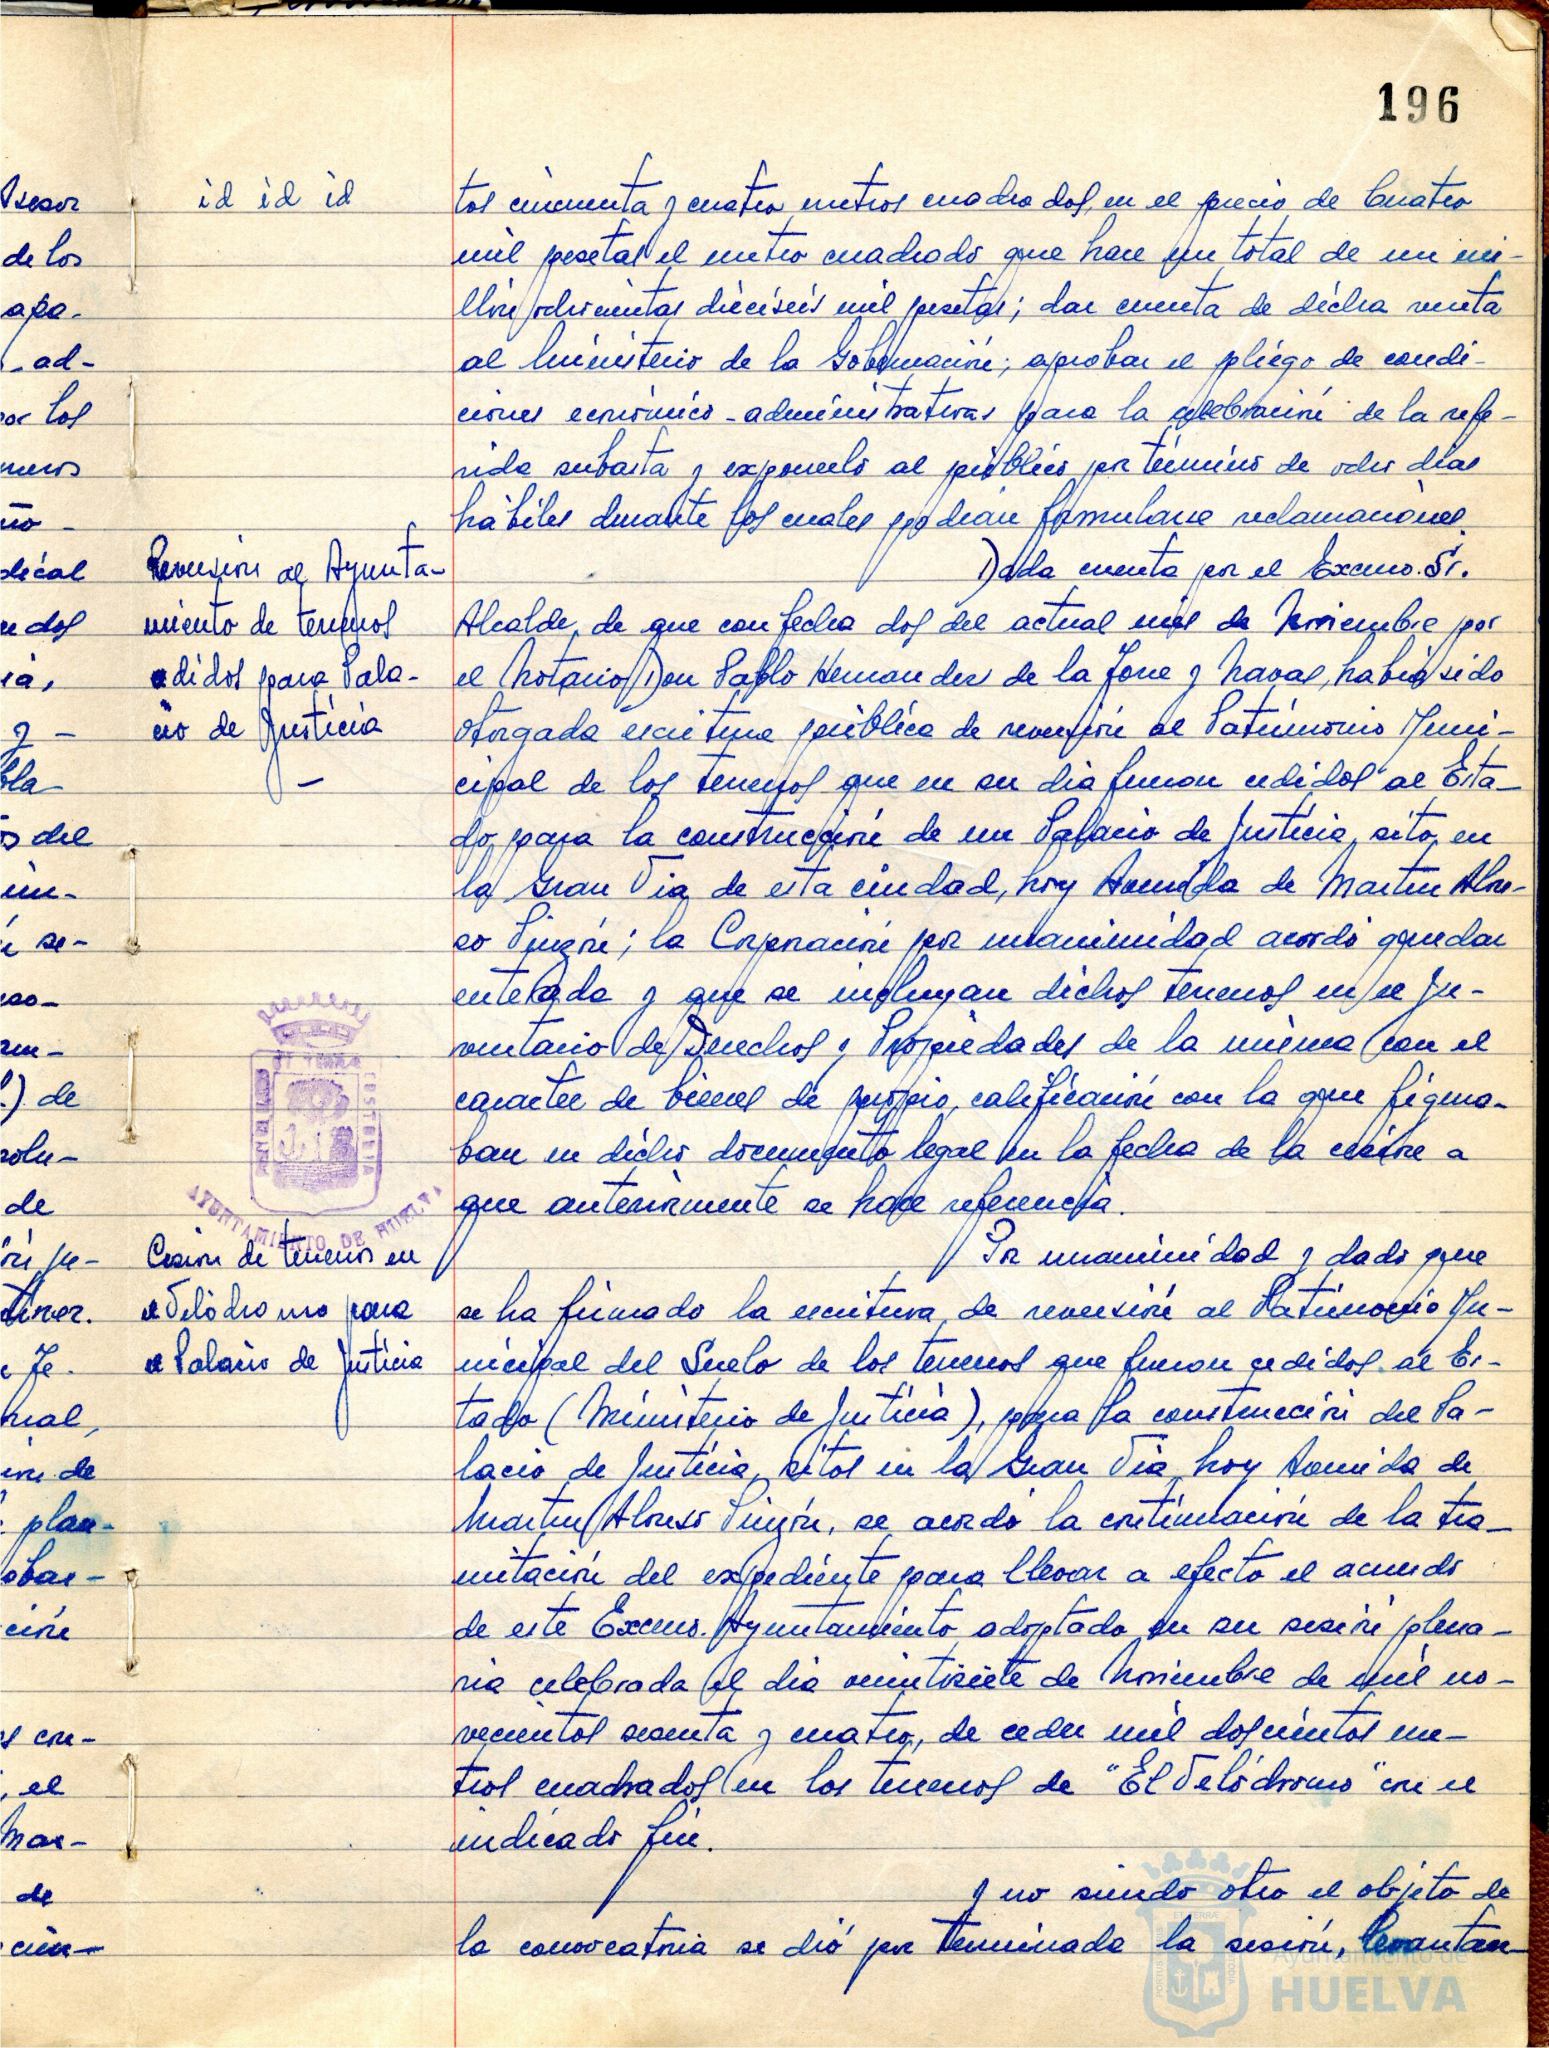 196
id id id
tos cincuenta y cuatro metros cuadrados, en el precio de Cuatro
mil pesetas el metro cuadrado que hace un total de un mi-
llón ochocientas dieciseis mil pesetas; dar cuenta de dicha venta
al Ministerio de la Gobernación; aprobar el pliego de condi-
ciones económico-administrativas para la celebración de la refe-
rida subasta y exponerlo al público por término de ocho días
hábiles durante los cuales podrán formularse reclamaciones.
Reversión al Ayunta-
miento de terrenos
cedidos para Pala-
cio de Justicia
Dada cuenta por el Excmo. Sr.
Alcalde, de que con fecha dos del actual mes de Noviembre por
el Notario Don Pablo Hernandez de la Torre y Navas, había sido
otorgada escritura pública de reversión al Patrimonio Muni-
cipal de los terrenos que en su dia fueron cedidos al Esta-
do, para la construcción de un Palacio de Justicia, sito en
la Gran Via de esta ciudad, hoy Avenida de Martin Alon-
so Pinzón; la Corporación por unanimidad acordó quedar
enterada y que se incluyan dichos terrenos en el In-
ventario de Derechos y Propiedades de la misma con el
caracter de bienes de propio, calificación con la que figura-
ban en dicho documento legal en la fecha de la cesión a
que anteriormente se hace referencia.
AYUNTAMIENTO DE HUELVA
Cesión de terrenos en
el Velódromo para
el Palacio de Justicia
Por unanimidad y dado que
se ha firmado la escritura de reversión al Patrimonio Mu-
nicipal del Suelo de los terrenos que fueron cedidos al Es-
tado (Ministerio de Justicia), para la construcción del Pa-
lacio de Justicia, sitos en la Gran Via, hoy Avenida de
Martin Alonso Pinzón, se acordó la continuación de la tra-
mitación del expediente para llevar a efecto el acuerdo
de este Excmo. Ayuntamiento, adoptado en su sesión plena-
ria celebrada el dia veintisiete de Noviembre de mil no-
vecientos sesenta y cuatro, de ceder mil doscientos me-
tros cuadrados en los terrenos de "El Velódromo" con el
indicado fin.
y no siendo otro el objeto de
la convocatoria se dió por terminada la sesión, levantan-
Ayuntamiento de
HUELVA